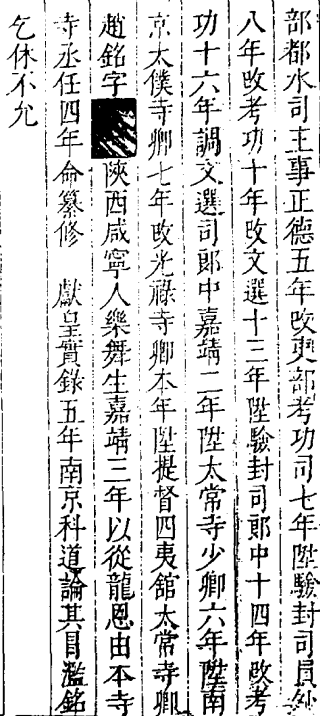 部都水司主事正德五年改吏部考功司七年陞驗封司員外
八年改考功十年改文選十三年陞驗封司郎中十四年改考
功十六年調文選司郎中嘉靖二年陞太常寺少卿六年陞南
京太僕寺卿七年改光祿寺卿本年陞提督四夷舘太常寺卿
趙銘字 陝西咸寧人樂舞生嘉靖三年以從龍恩由本寺
寺丞任四年命纂修 獻皇實錄五年南京科道論其冒濫銘
乞休不允